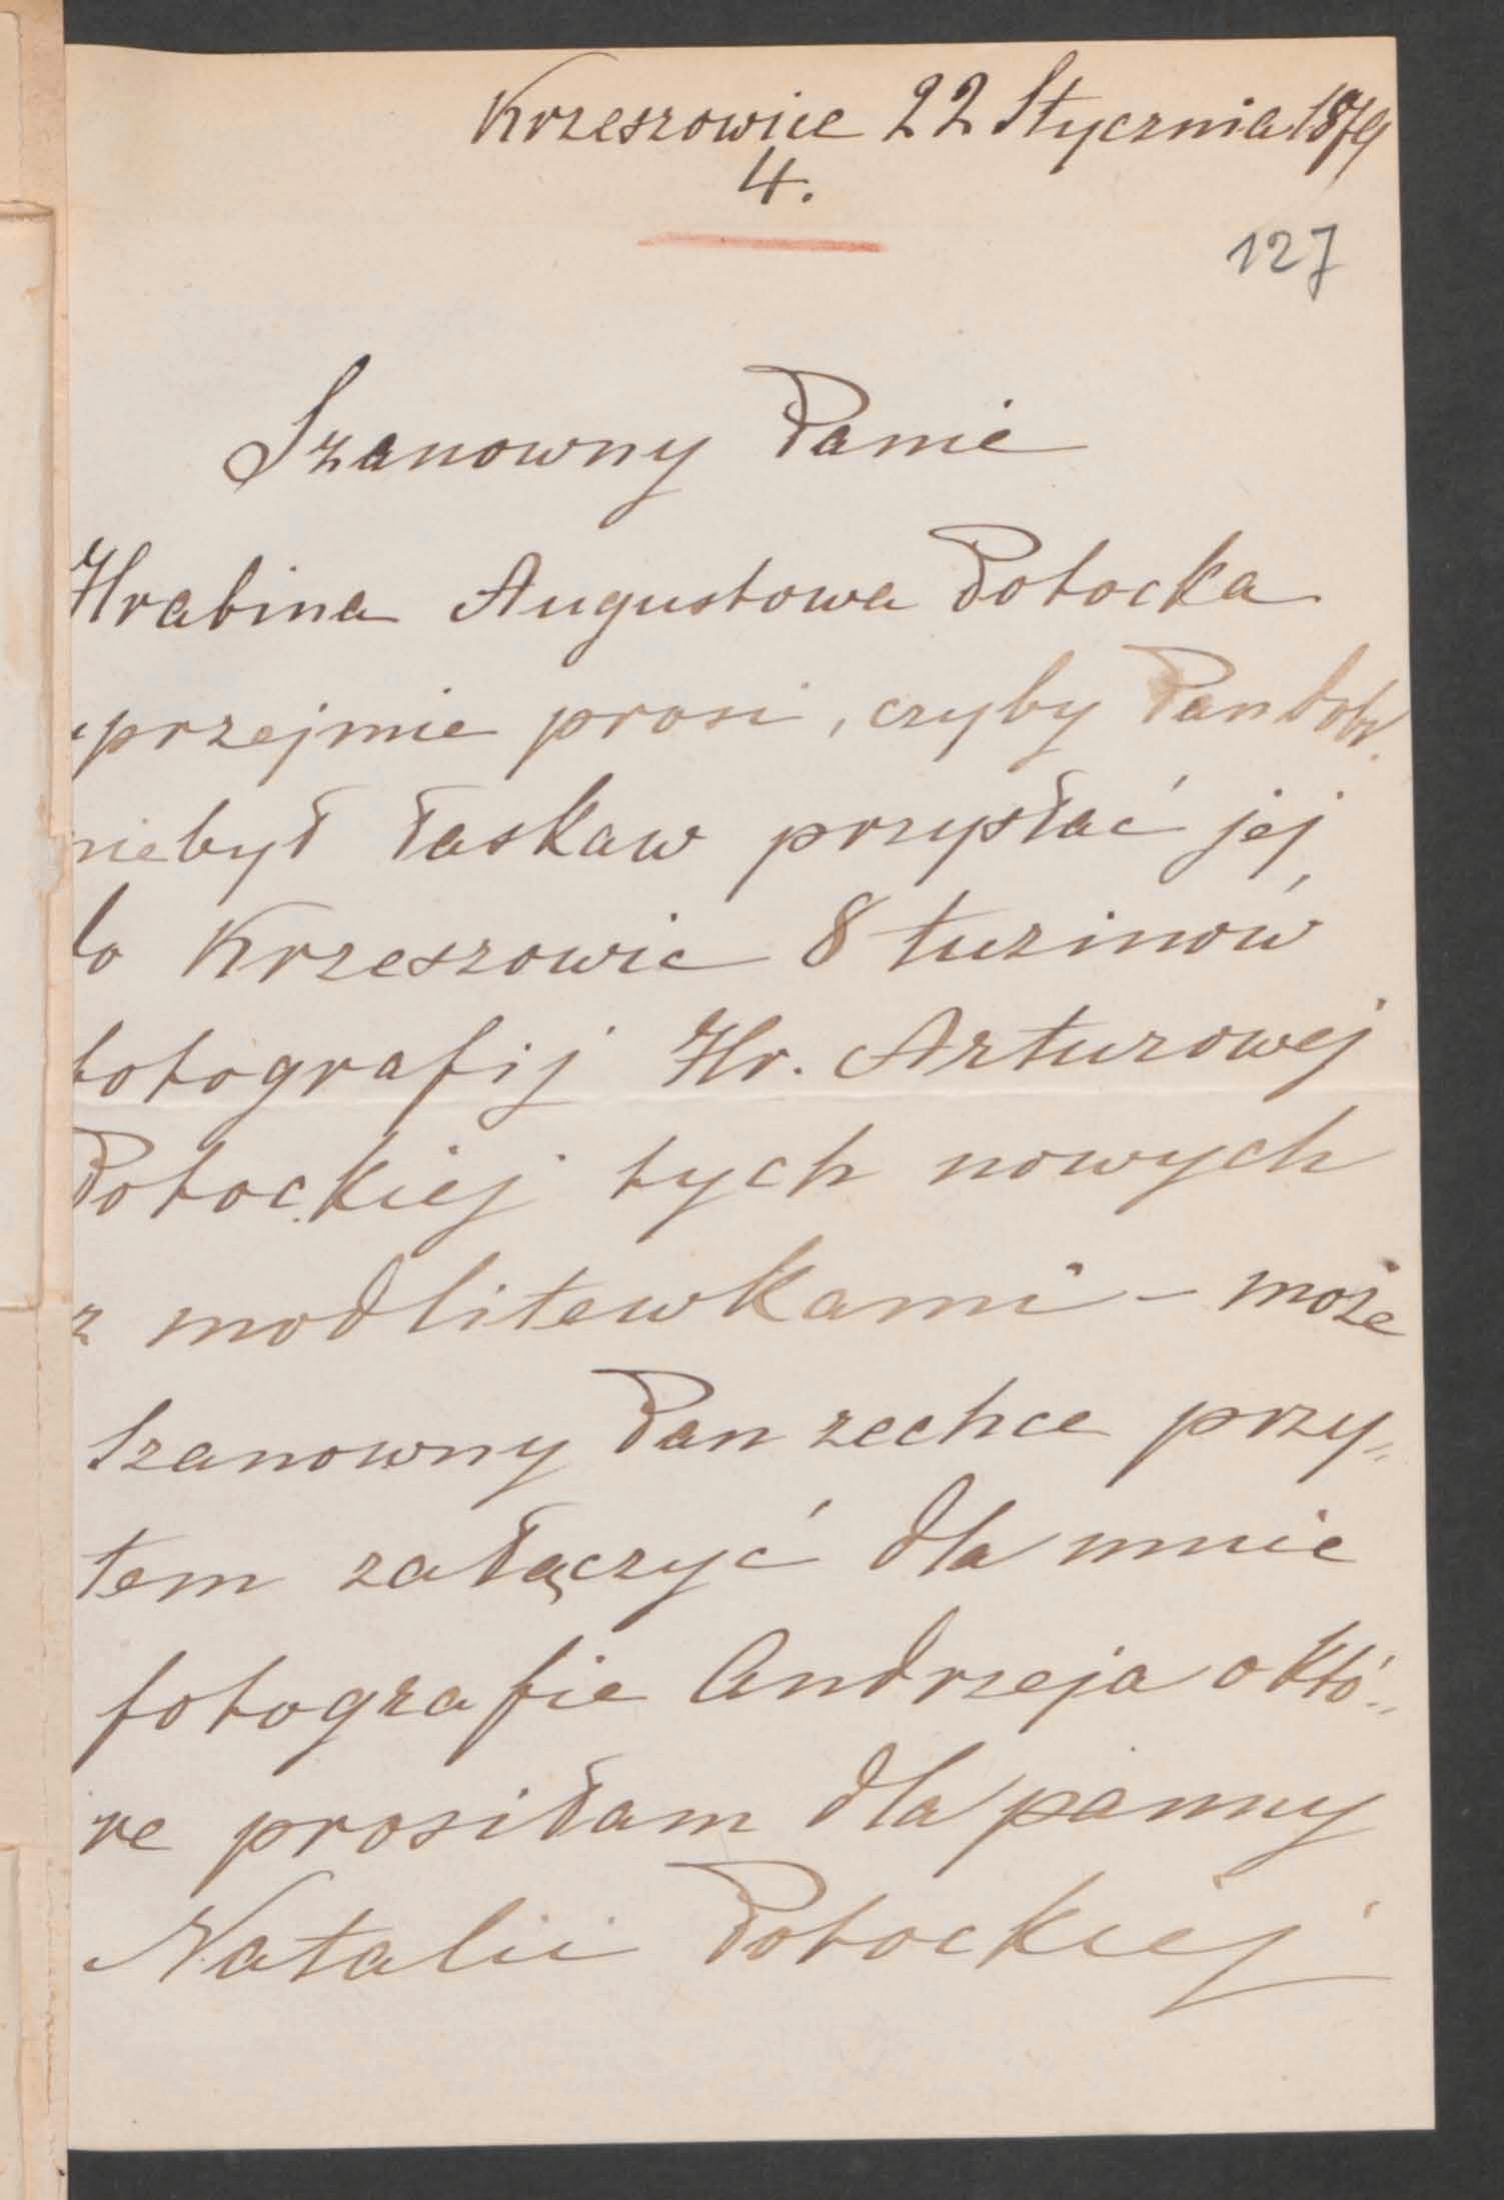 Krzeszowice 22 Stycznia 1879
4.
127
Szanowny Panie
Hrabina Augustowa Potocka
uprzejmie prosi, czyby Pan Dobr.
niebył łaskaw przysłać jej
do Krzeszowic 8 tuzinów
fotografij Hr. Arturowej
Potockiej tych nowych
z modlitewkami – może
Szanowny Pan zechce przy„
tem załączyć dla mnie
fotografie Andrzeja o któ„
re prosiłam dla panny
Natalii Potockiej